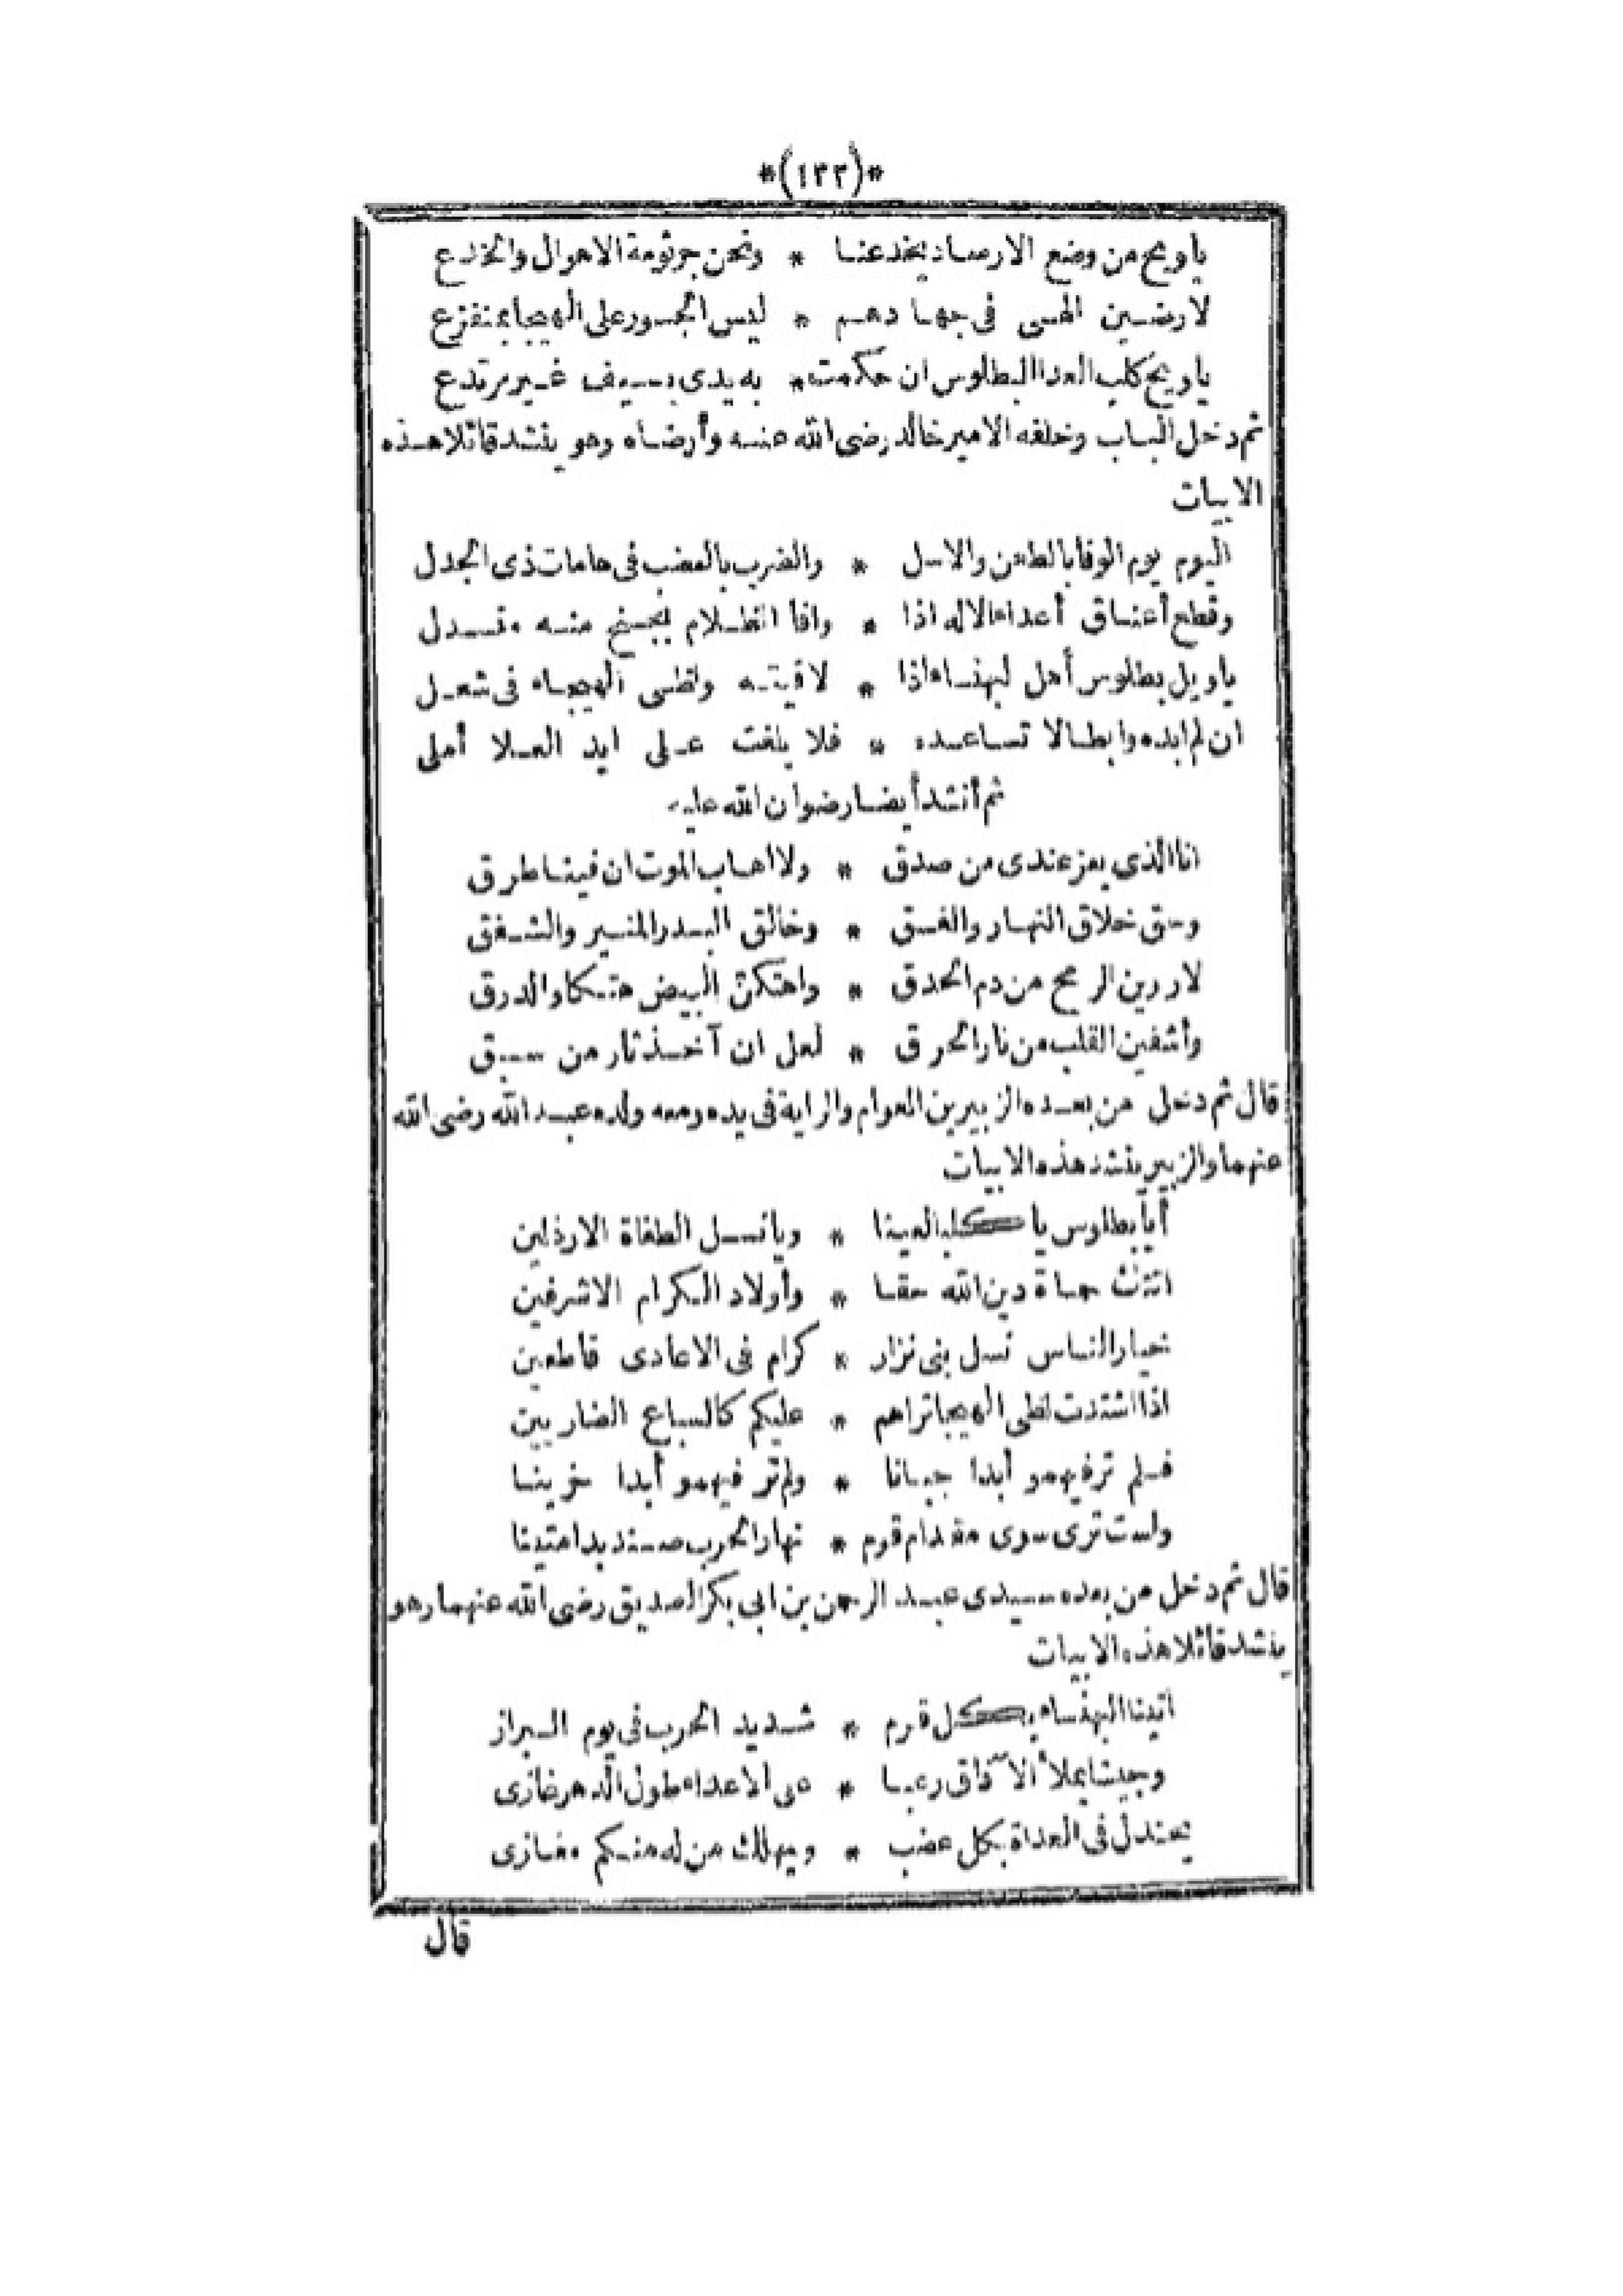 *(١٣٣)*
ياويح من وضع الارصاد يخدعنا * ونحن جرثومة الاهوال والخدع
لارضين الهى فى جهادهم * ليس الجسور على الهيجا بمنفزع
ياويح كلب العدا البطلوس ان حكمت * به يدى بسيف غير مرتدع
ثم دخل الباب وخلفه الامير خالد رضى الله عنه وأرضاه وهو ينشد قائلا هذه
الابيات
اليوم يوم الوفا بالطعن والاسل * والضرب بالعضب فى هامات ذى الجدل
وقطع أعناق أعداء الاله اذا * وافا الظلام بجنح منه منسدل
ياويل بطلوس أهل لبهنساء اذا * لاقيته ولظى الهيجاء فى شعل
ان لم ابده وابطالا تساعده * فلا بلغت على ايد العلا أملى
ثم أنشد أيضا رضوان الله عليه
انا الذى يعز عندى من صدق * ولا اهاب الموت ان فينا طرق
وحق خلاق النهار والغسق * وخالق البدر المنير والشفق
لاروين الرمح من دم الحدق * واهتكن البيض هتكا والدرق
وأشفين القلب من نار الحرق * لعل ان آخذ ثار من سبق
قال ثم دخل من بعده الزبير بن العوام والراية فى يده ومعه ولده عبد الله رضى الله
عنهما والزبير ينشد هذه الابيات
أيا بطلوس يا كلب العينا * ويا نسل الطغاة الارذلين
اتتك حماة دين الله حقا * وأولاد الكرام الاشرفين
خيار الناس نسل بنى نزار * كرام فى الاعادى قاطعين
اذا اشتدت لظى الهيجا تراهم * عليكم كالسباع الضاريين
فلم ترفيهمو أبدا جبانا * ولم تر فيهمو أبدا حزينا
ولست ترى سوى مقدام قوم * نهار الحرب صنديدا متينا
قال ثم دخل من بعده سيدى عبد الرحمن بن ابى بكر الصديق رضى الله عنهما وهو
ينشد قائلا هذه الابيات
أتينا البهنساء بكل قرم * شديد الحرب فى يوم البراز
وجيشا يملأ الآفاق رعبا * على الاعداء طول الدهر غازى
يجندل فى العداة بكل عضب * ويهلك من له منكم مغازى
قال